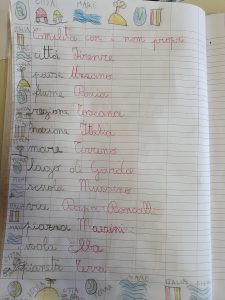 CITTÀ MARE
Completa con i nom propri
città Firenze
paese
fiume
regione Toscana
nazione Italia
mare Tirreno
lago di Garda
scuola
via Papa Roncalli
piazza Mazzini
isola Elba
pianeta Terra
MARE ITALIA